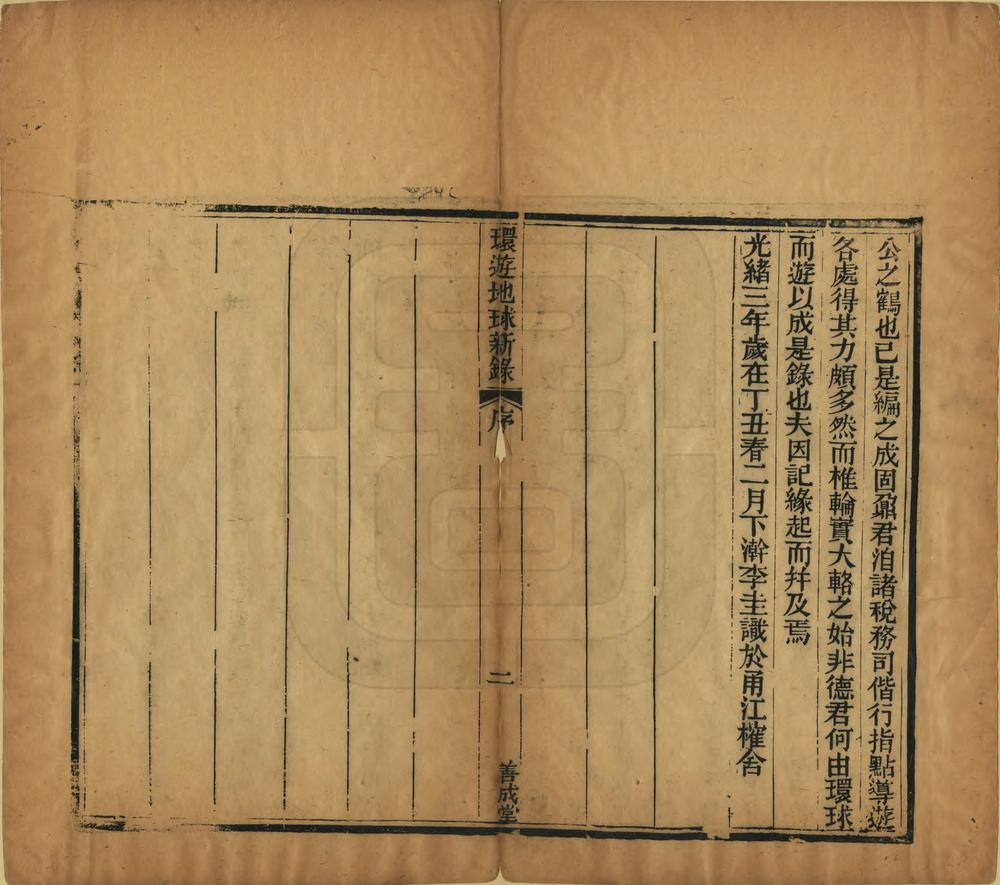 公之鶴也已是編之成固鼐君洎諸稅務司偕行指點導遊
各處得其力頗多然而椎輪實大輅之始非德君何由環球
而遊以成是錄也夫因記緣起而并及焉
光緒三年歲在丁丑春二月下澣李圭識於甬江榷舍
環遊地球新錄 序 二 善成堂